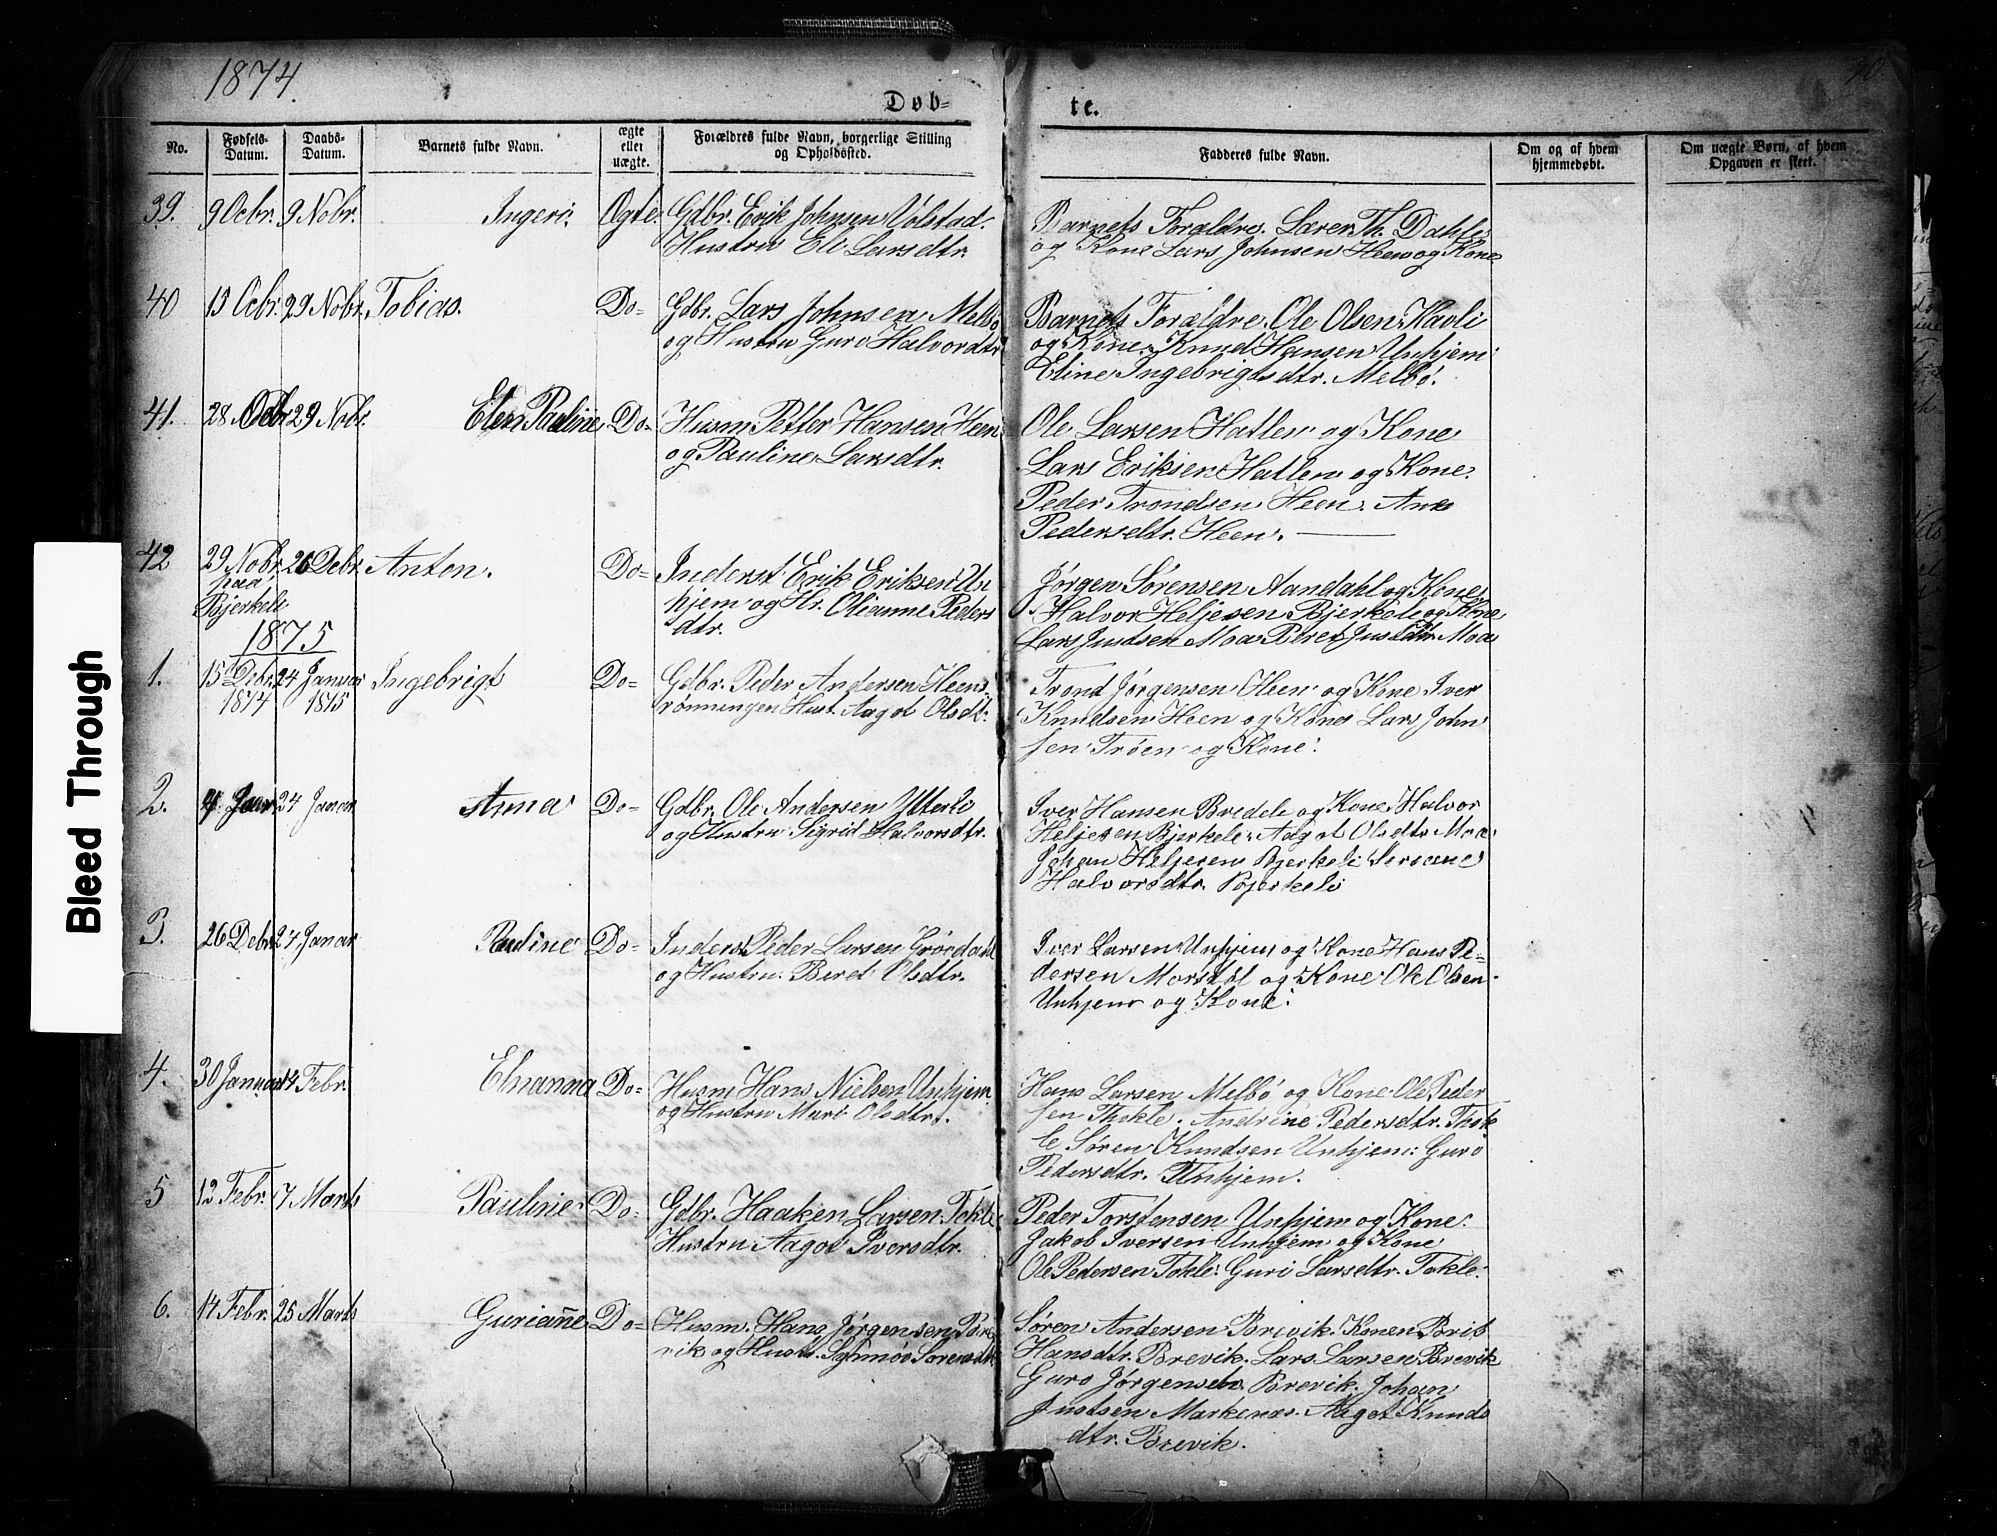 1874.
30.
Døb-
te.
No.
Fødsels-Datum.
Daabs-Datum.
Barnets fulde Navn.
ægte eller uægte.
Forældres fulde Navn, borgerlige Stilling og Opholdssted.
Fadderes fulde Navn.
Om og af hvem hjemmedøbt.
Om uægte Børn, af hvem Opgaven er skeet.
39. 9 Ocbr. 9 Nobr. Ingeri. Ogte. Gdbr. Erik Johnsen Volstad.
Hustru Eli Larsdtr.
Barnets Forældre. Lærer Th. Dahle
og Kone Lars Johnsen Heen og Kone
40 13 Ocbr. 29 Nobr. Tobias. Do- Gdbr. Lars Johnsen Melbø
og Hustru Guro Halvordtr
Barnets Forældre. Ole Olsen Havli
og Kone. Knud Hansen Unhjem
Eline Ingebrigtsdtr. Melbø.
41. 28 Ocbr 29 Nobr. Elen Pauline Do- Husm. Petter Hansen Heen
og Pauline Larsdtr.
Ole Larsen Hatlen og Kone
Lars Eriksen Hatlen og Kone.
Peder Trondsen Heen. Ane
Pedersdtr. Heen.
42 29 Nobr. 26 Debr. Anton. Do- Inderst Erik Eriksen Un
paa Bjerkeli
hjem og Hr. Olianne Peders
dtr.
Jørgen Sørensen Aandahl og Kone,
Halvor Heljesen Bjerkeli og Kone
Lars Justsen Moa Beret Justdtr Moa
1875
1. 15 Debr. 24 Januar Ingebrigt Do- Gdbr. Peder Andersen Heens
1874 1875
rønningen Hust. Aagot Olsdt.
Trond Jørgensen Heen og Kone Iver
Knudsen Heen og Kone Lars John
sen Trøen og Kone.
2. 4 Janr 24 Januar Anna Do- Gdbr. Ole Andersen Ytterli
og Hustru Sigrid Halvorsdtr.
Iver Hansen Bredeli og Kone Halvor
Heljesen Bjerkeli. Aagot Olsdtr Moa
Johan Heljesen Bjerkeli
Halvorsdtr. Bjerkeli
3. 26 Debr 24 Januar Pauline Do- Inderst Peder Larsen Grøvdahl
og Hustru Beret Olsdtr.
Iver Larsen Unhjem og Kone Hans Pe-
dersen Morstøl og Kone Ole Olsen
Unhjem og Kone.
4. 30 Januar 14 Febr. Elnanna Do- Husm Hans Nielsen Unhjem
og Hustru Mari Olsdtr.
Hans Larsen Melbø og Kone Ole Peder
sen Thokle. Andrine Pedersdtr. Thok
le Søren Knudsen Unhjem. Guro
Pedersdtr. Unhjem.
5 12 Febr. 7 Marts Pauline Do- Gdbr. Haaken Larsen Tokle
Hustru Aagot Iversdtr.
Peder Torstensen Unhjem og Kone.
Jakob Iversen Unhjem og Kone
Ole Pedersen Tokle. Guri Larsdtr. Tokle.
6. 14 Febr. 25 Marts Gurianne Do- Husm. Hans Jørgensen Bre
vik og Hustr. Synnøv Sørensdtr
Søren Andersen Brevik. Konen Brit
Hansdtr. Brevik. Lars Larsen Brevik
Guro Jørgensdtr. Brevik. Johan
Justsen Markenæs. Aagot Knuds
dtr. Brevik.
Bleed Through